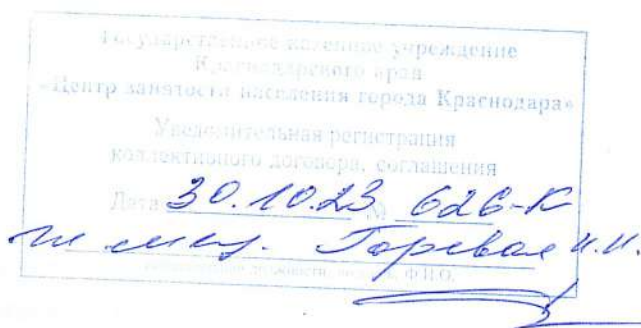 Государственное казенное учреждение
Краснодарского края
«Центр занятости населения города Краснодара»
Уведомительная регистрация
коллективного договора, соглашения
Дата 30.10.23 № 626-К
Горевая И.И.
должности, Ф.И.О.